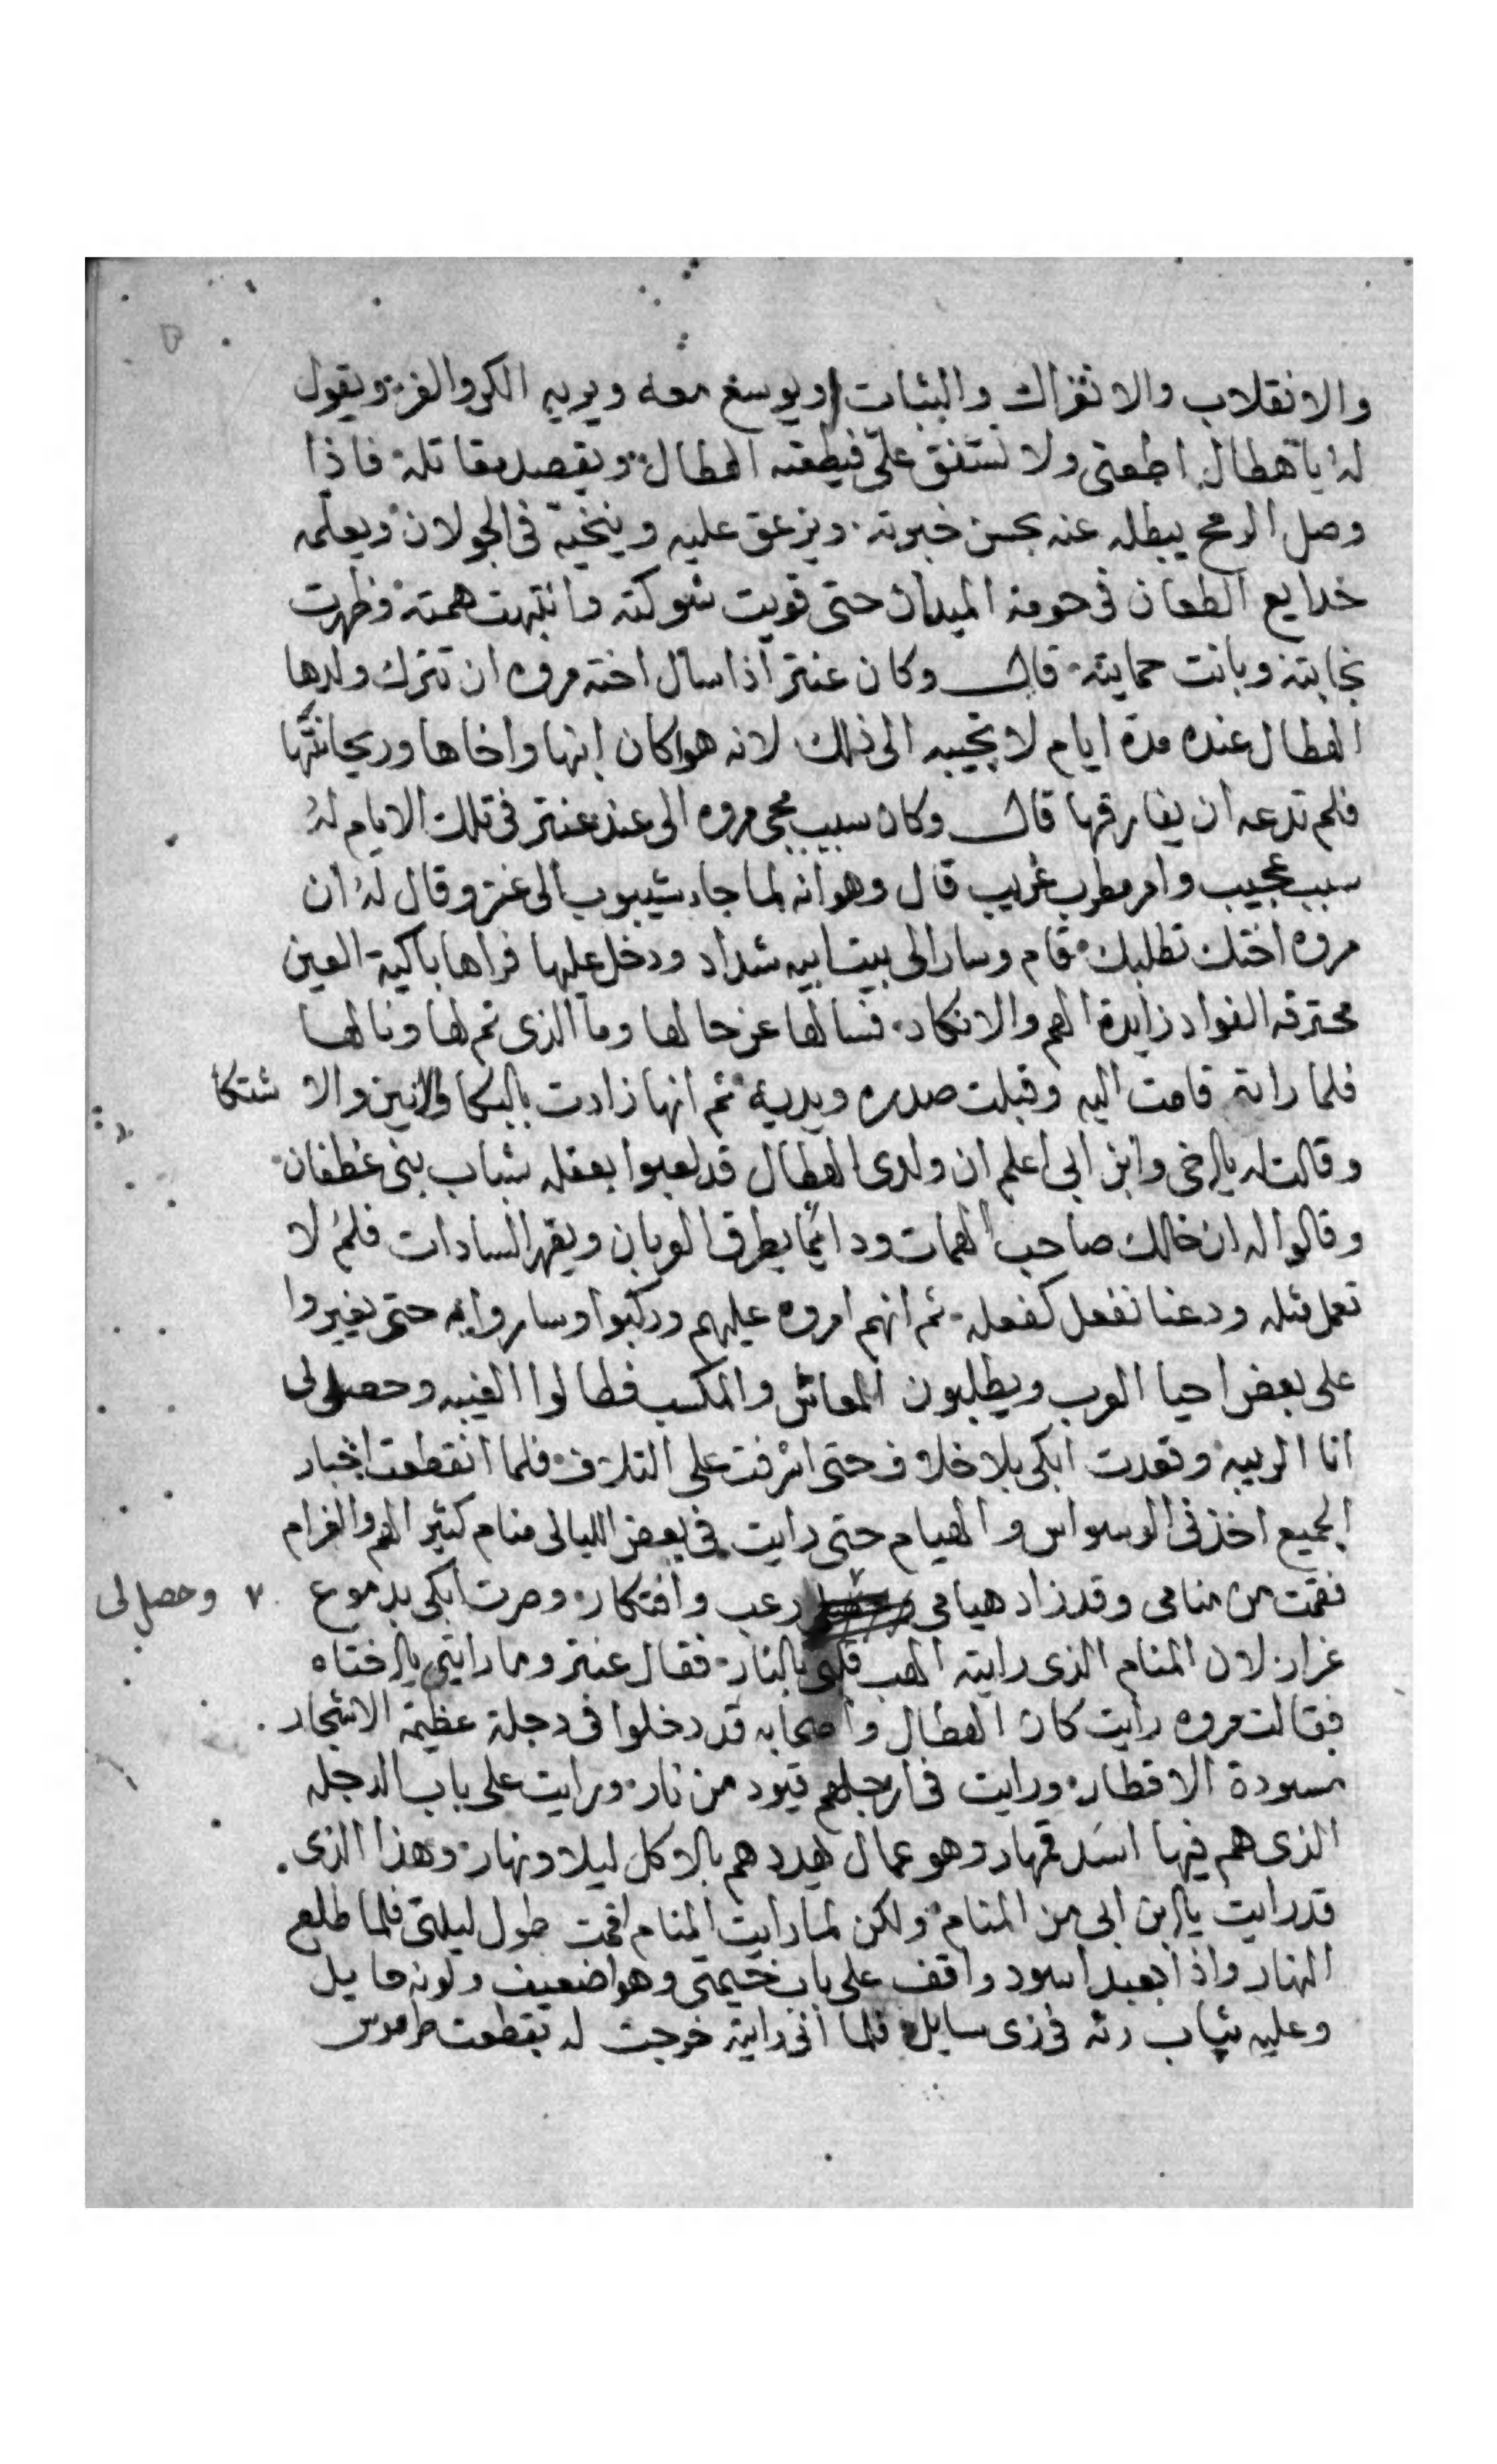 والانقلاب والانفراك والثبات ويوسع معه ويريه الكر والفر ويقول
له ياهطال اطعنى ولا تشفق علىّ فيطعنه الهطال ويقصد مقاتله فاذا
وصل الرمح يبطله عنه بحسن خبرته ويزعق عليه وينخيه فى الجولان ويعلمه
خدايع الطعان فى حومة الميدان حتى قويت شوكته وانتبهت همته وظهرت
نجابته وبانت حمايته قال وكان عنتر اذا سال اخته مروه ان تترك ولدها
الهطال عنده مدة ايام لا تجيبه الى ذلك لانه هو كان ابنها واخاها وريحانتها
فلم تدعه ان يفارقها قال وكان سبب مجى مروه الى عند عنتر فى تلك الايام له
سبب عجيب وامر مطرب غريب قال وهو انه لما جاء شيبوب الى عنتر وقال له ان
مروه اختك تطلبك قام وسار الى بيت ابيه شداد ودخل عليها فراها باكية العين
محترقه الفواد زايدة الهم والانكاد فسالها عن حالها وما الذى تم لها ونالها
فلما راته قامت اليه وقبلت صدره ويديه ثم انها زادت بالبكا والانين والا شتكا
وقالت له يا اخى وابن ابى اعلم ان ولدى الهطال قد لعبوا بعقله شباب بنى غطفان
وقالوا له ان خالك صاحب الهمات ودائما يطرق العربان ويقهر السادات فلم لا
تعمل مثله ودعنا نفعل كفعله ثم انهم امروه عليهم وركبوا وساروا به حتى يغيروا
على بعض احيا العرب ويطلبون المعاش والمكسب فطالوا الغيبه وحصل لى
انا الريبه وقعدت ابكى بلا خلاف حتى اشرفت على التلاف فلما انقطعت اخبار
الجميع اخذنى الوسواس والهيام حتى رايت فى بعض الليالى منام كثير الهم والغرام
فقمت من منامى وقد زاد هيامى رعب وافتكار وصرت ابكى بدموع ٧ وحصل لى
غزار لان المنام الذى رايته الهب قلبى بالنار فقال عنتر وما رايتى يا اختاه
فقالت مروه رايت كان الهطال واصحابه قد دخلوا فى دجلة عظيمة الاشجار
مسودة الاقطار ورايت فى ارجلهم قيود من نار ورايت على باب الدجله
الذى هم فيها اسد قهار وهو عمال يهددهم بالاكل ليلا ونهار وهذا الذى
قد رايت يا ابن ابى من المنام ولكن لما رايت المنام اقمت طول ليلتى فلما طلع
النهار واذا بعبد اسود واقف على باب خيمتى وهو ضعيف ولونه حايل
وعليه ثياب رثه فى زى سايل فلما انى رايته خرجت له بقطعت